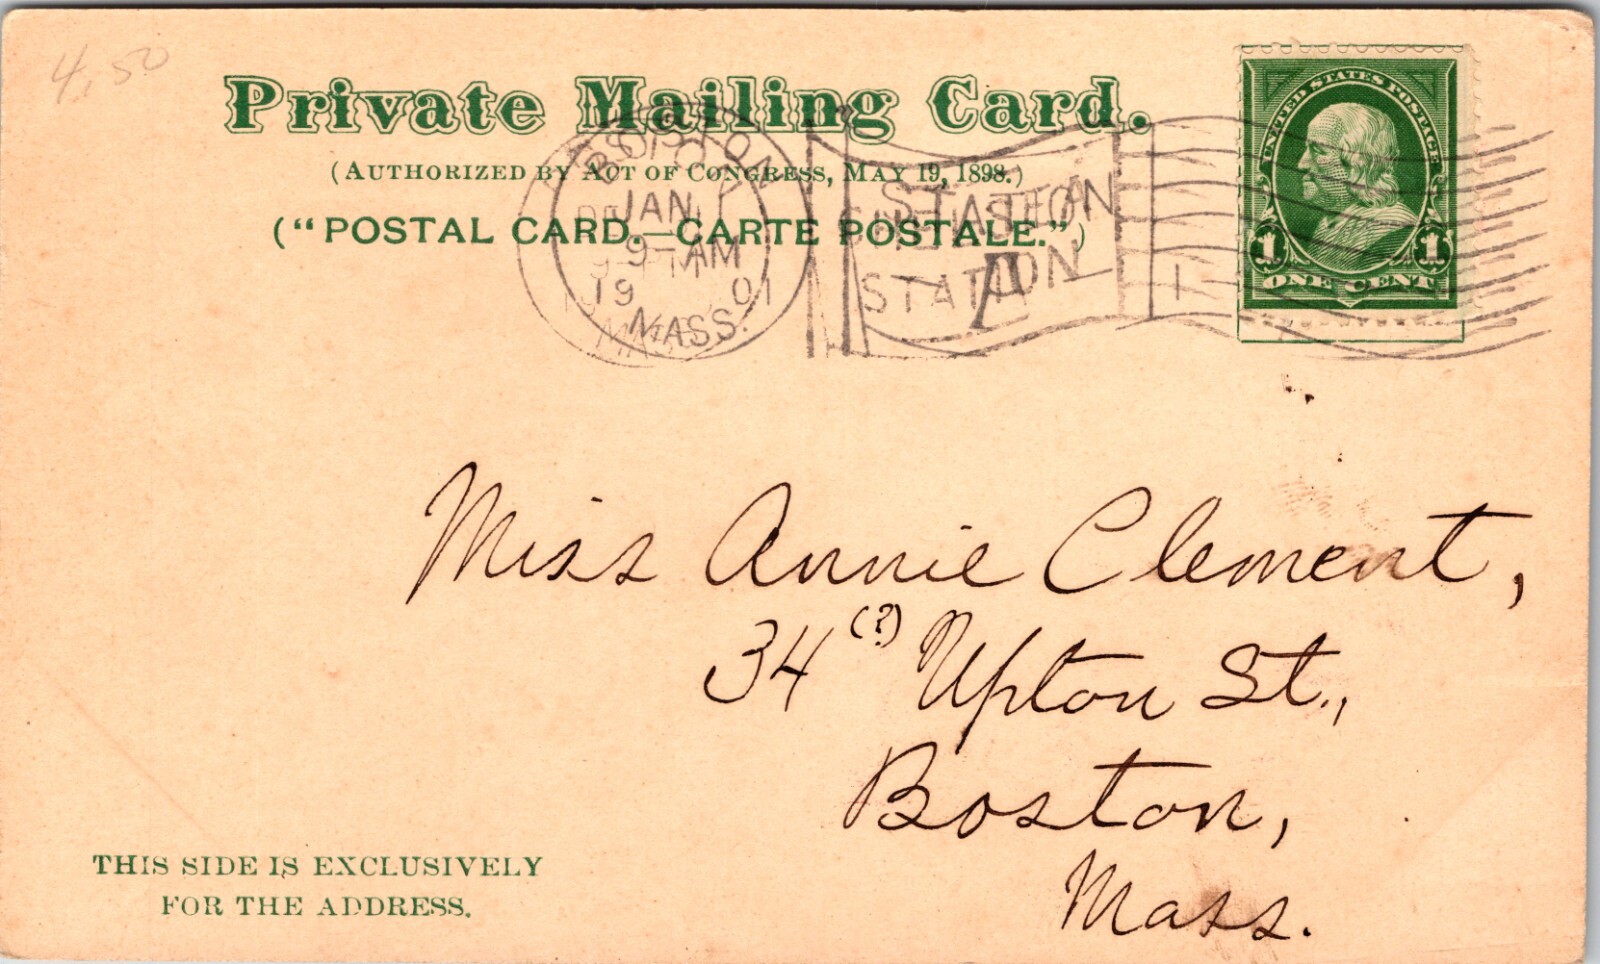 4.50
Private Mailing Card.
(AUTHORIZED BY ACT OF CONGRESS, MAY 19, 1898.)
("POSTAL CARD.—CARTE POSTALE.")
UNITED STATES POSTAGE
1 1
ONE CENT
BOSTON
JAN 1
9-AM
19 01
MASS.
STATION
A
STATION
1
Miss Annie Clement,
34 (?) Upton St.,
Boston,
Mass.
THIS SIDE IS EXCLUSIVELY
FOR THE ADDRESS.